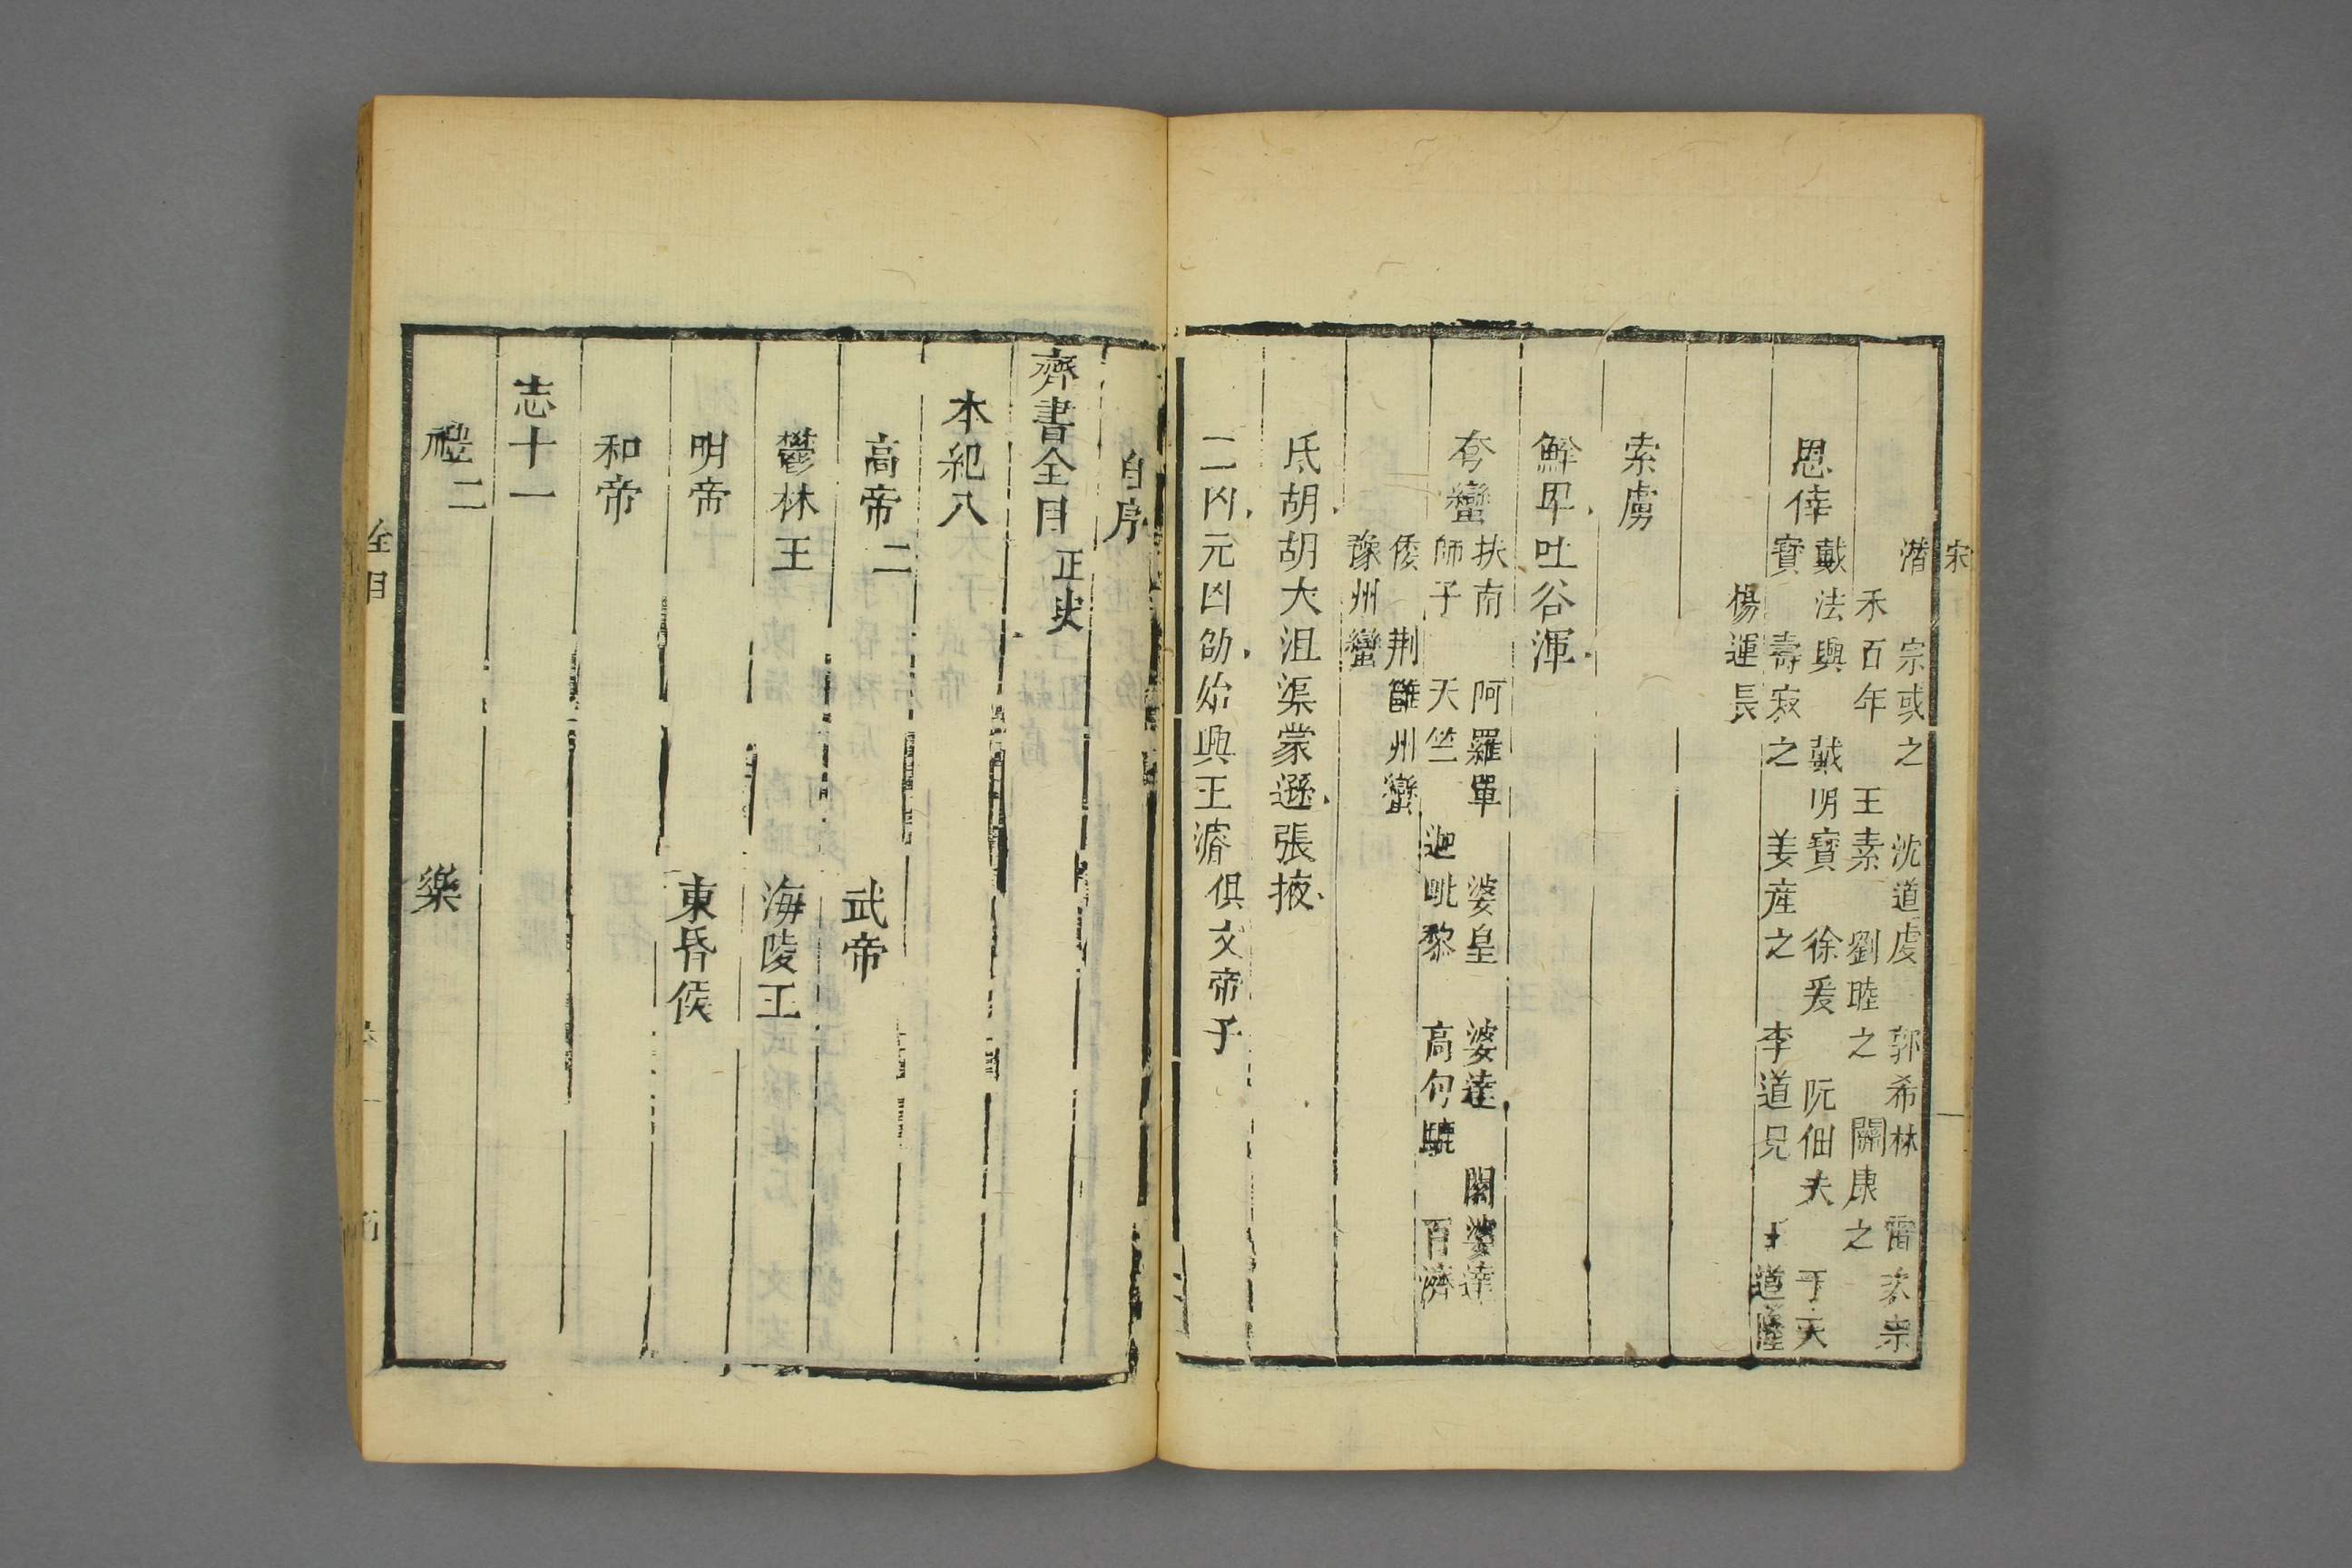 宋
潛 宗彧之 沈道虔 郭希林 雷次宗
禾百年 王素 劉睦之 關康之
恩倖
戴法興 戴明寶 徐爰 阮佃夫 于天
寶 壽寂之 姜産之 李道兒 王道隆
楊運長
索虜
鮮卑吐谷渾
夯蠻
扶南 阿羅單 婆皇 婆達 闍婆達
師子 天竺 迦毗黎 高句驪 百濟
倭 荆雝州蠻
豫州蠻
氐胡胡大沮渠蒙遜張掖
二凶元凶劭始興王濬俱文帝子
自序
齊書全目 正史
本紀八
高帝二 武帝
鬱林王 海陵王
明帝 東昏侯
和帝
志十一
禮二 樂
全目